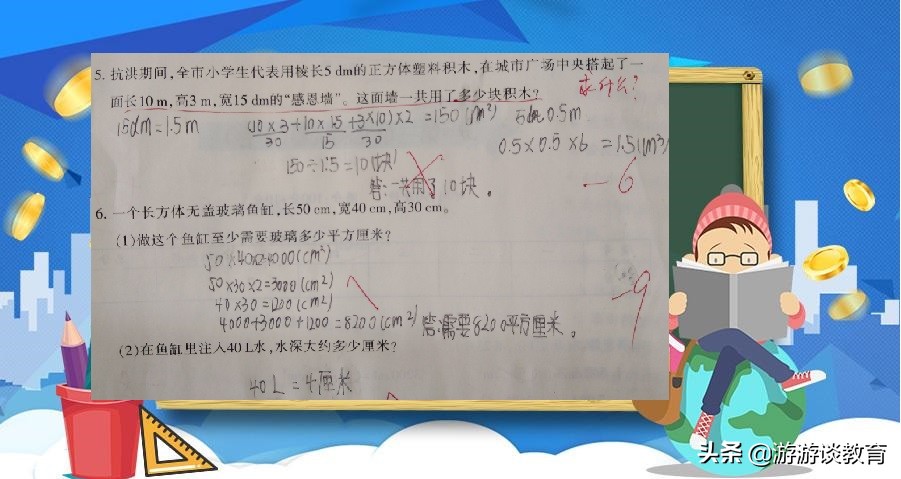 5. 抗洪期间,全市小学生代表用棱长5 dm的正方体塑料积木,在城市广场中央搭起了一
面长10 m,高3 m,宽15 dm的“感恩墙”。这面墙一共用了多少块积木?
求什么?
15dm=1.5m
(10×3+10×15+3×10)×2 =150(m³)
30 15 30
5dm=0.5m
0.5×0.5×6 =1.5(m³)
150÷1.5=10(块)
答:一共用了10块。
-6
6. 一个长方体无盖玻璃鱼缸,长50 cm,宽40 cm,高30 cm。
(1)做这个鱼缸至少需要玻璃多少平方厘米?
50×30×2=3000(cm2)
40×30=1200(cm2)
4000+3000+1200=8200(cm2) 答:需要8200平方厘米。
-9
(2)在鱼缸里注入40 L水,水深大约多少厘米?
40L=4厘米
头条 @游游谈教育